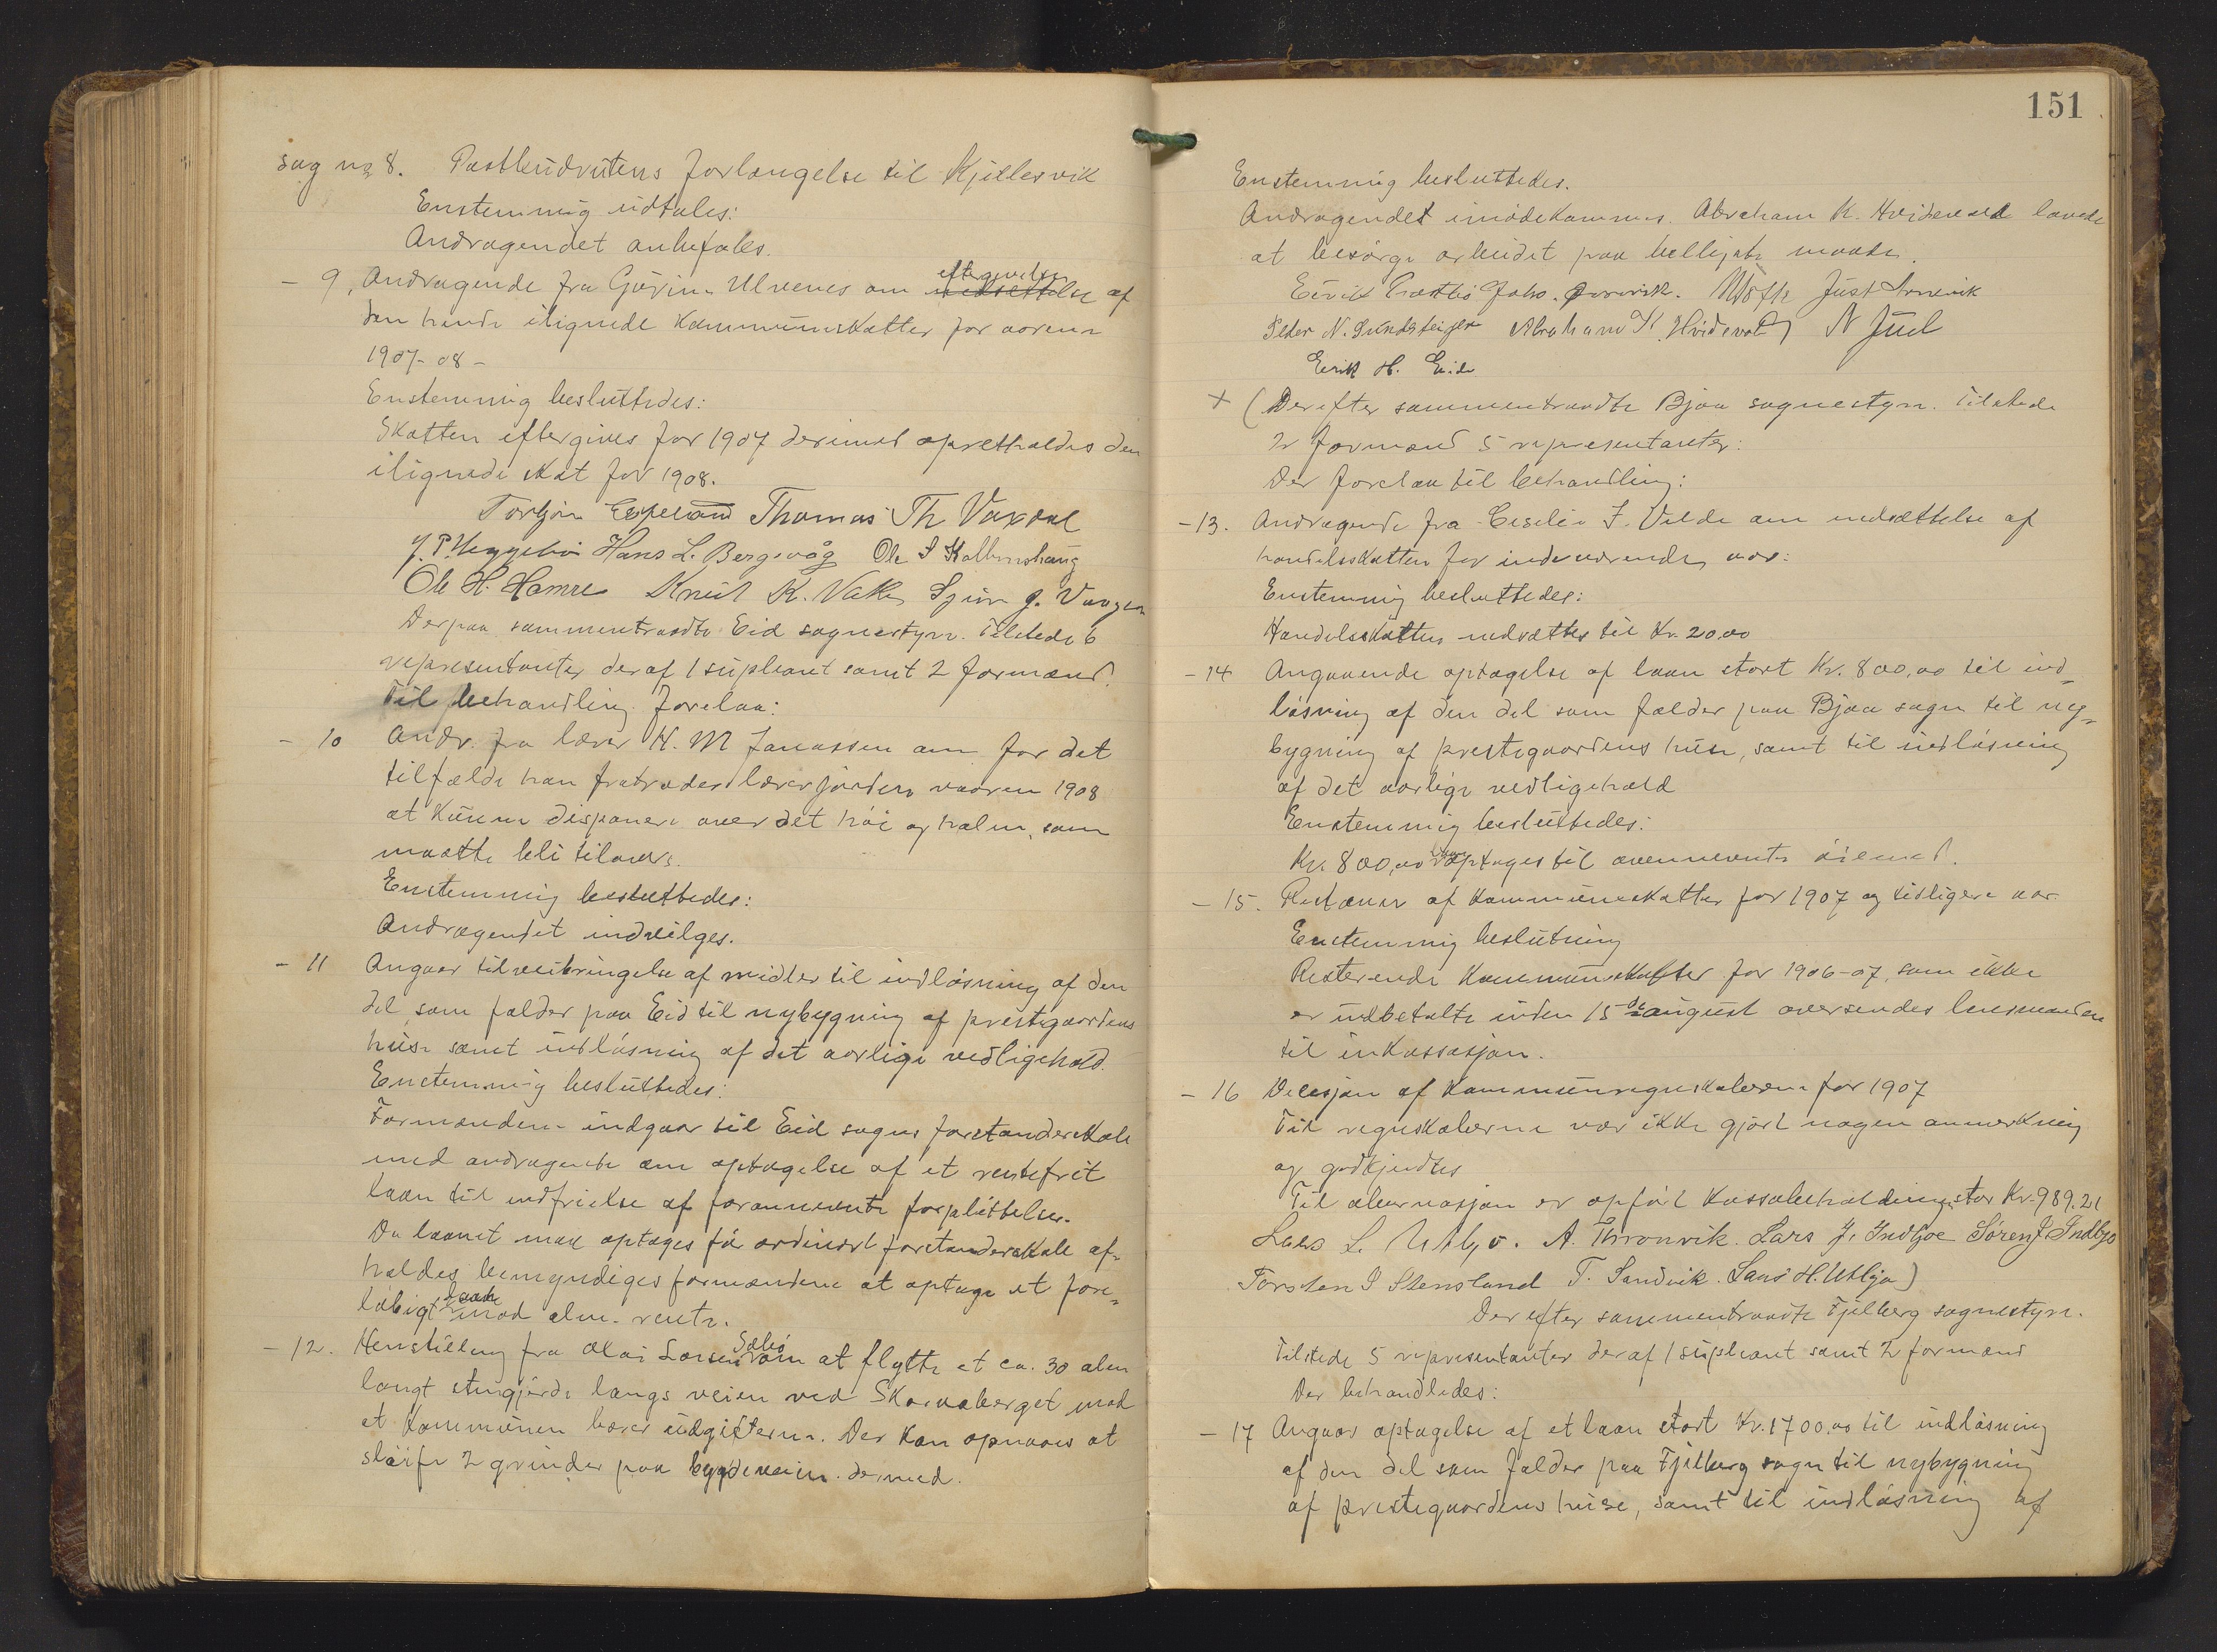 sag no 8. Postbudrutens forlængelse til Kjillesvik
Enstemmig udtales:
Andragendet anbefales.
- 9, Andragende fra Gurina Ulvenes om nedsættelse eftergivelse af
den hende ilignede kommuneskatter for aarene
1907-08 -
Enstemmig besluttedes:
Skatten eftergives for 1907 derimot opretholdes den
ilignede skat for 1908.
Torbjørn Espeland Thomas Th Vaxdal
J. P. Heggebø Hans L. Bergsvåg Ole I Kolbenshaug
Ole H. Hamre Knut K. Vatle Sjur J. Vangen
Derpaa sammentraadte Eid sognestyre. Tilstede 6
representanter deraf 1 supleant samt 2 formænd.
Til behandling forelaa:
- 10 Andr. fra lærer H. M Janassen om for det
tilfælde han fratræder lærerjorden vaaren 1908
at kunne disponere over det höi og halm, som
maatte bli tilovers.
Enstemmig besluttedes:
Andragendet indvilges.
- 11 Angaar tilveiebringelse af midler til indlösning af den
del som falder paa Eid til nybygning af prestegaardens
huse samt indlösning af det aarlige vedligehold.
Enstemmig besluttedes:
Formændene indgaar til Eid sogns forstanderskab
med andragende om optagelse af et rentefrit
laan til indfrielse af forannevnte forpligtelse.
Da laanet maa optages för ordinært forstanderskab af-
holdes bemyndiges formændene at optage et fore-
löbigt laan mod alm. rente.
- 12. Henstilling fra Olai Larsen Sæbö om at flytte et ca. 30 alen
langt stengjerde langs veien ved Skarvaberget mod
at kommunen bærer udgifterne. Der kan opnaaes at
slöife 2 grinder paa bygdeveien dermed.
151
Enstemmig besluttedes.
Andragendet imödekommes. Abraham K. Hvidevold lovede
at besörge arbeidet paa belligste maade.
Eirik Præstbö Johs. Just Arnevik
Peder N. Sundsteigen Abraham K. Hvidevold N Juul
Eirik H. Eide
+ (Derefter sammentraadte Bjoa sognestyre. Tilstede
2 formænd 5 representanter:
Der forelaa til behandling:
- 13. Andragende fra Ceselie J. Velde om nedsættelse af
handelsskatten for indeværende aar:
Enstemmig besluttedes:
Handelsskatten nedsættes til Kr. 20,00
- 14 Angaaende optagelse af laan stort Kr. 800,00 til ind-
lösning af den del som falder paa Bjoa sogn til ny-
bygning af prestegaardens huse, samt til indlösning
af det aarlige vedligehold
Enstemmig besluttedes:
Kr. 800,00 optages til ovennevnte öiemed.
- 15. Restanser af kommuneskatter for 1907 og tidligere aar.
Enstemmig beslutning
Resterende kommuneskatter for 1906-07, som ikke
er indbetalte inden 15de august oversendes lensmanden
til inkassasjon.
- 16 Decisjon af kommuneregnskaberne for 1907
Til regnskaberne var ikke gjört nogen anmerkning
og godkjendtes
Til observasjon er opfört kassabeholdning stor Kr. 989.21
Lars L. Utbjo. A. Thronvik. Lars J. Indbjoe Søren J. Indbjo
Torsten I Stensland T. Sandvik. Lars H. Utbjo)
Derefter sammentraadte Fjelberg sognestyre.
Tilstede 5 representanter deraf 1 supleant samt 2 formænd
Der behandledes:
- 17 Angaar optagelse af et laan stort Kr. 1700.00 til indlösning
af den del som falder paa Fjelberg sogn til nybygning
af prestegaardens huse, samt til indlösning af